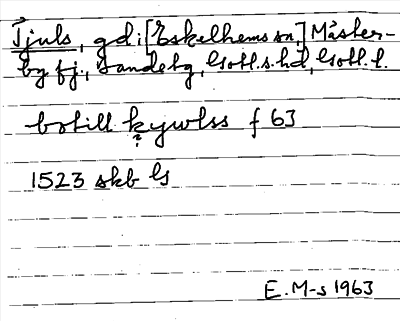 Tjuls, gd i [Eskelhems sn] Mäster-
by fj., Sandebg, Gotl.s.hd, Gotl. l.
botill kywlss f 63
?
1523 skb G
E. M-s 1963